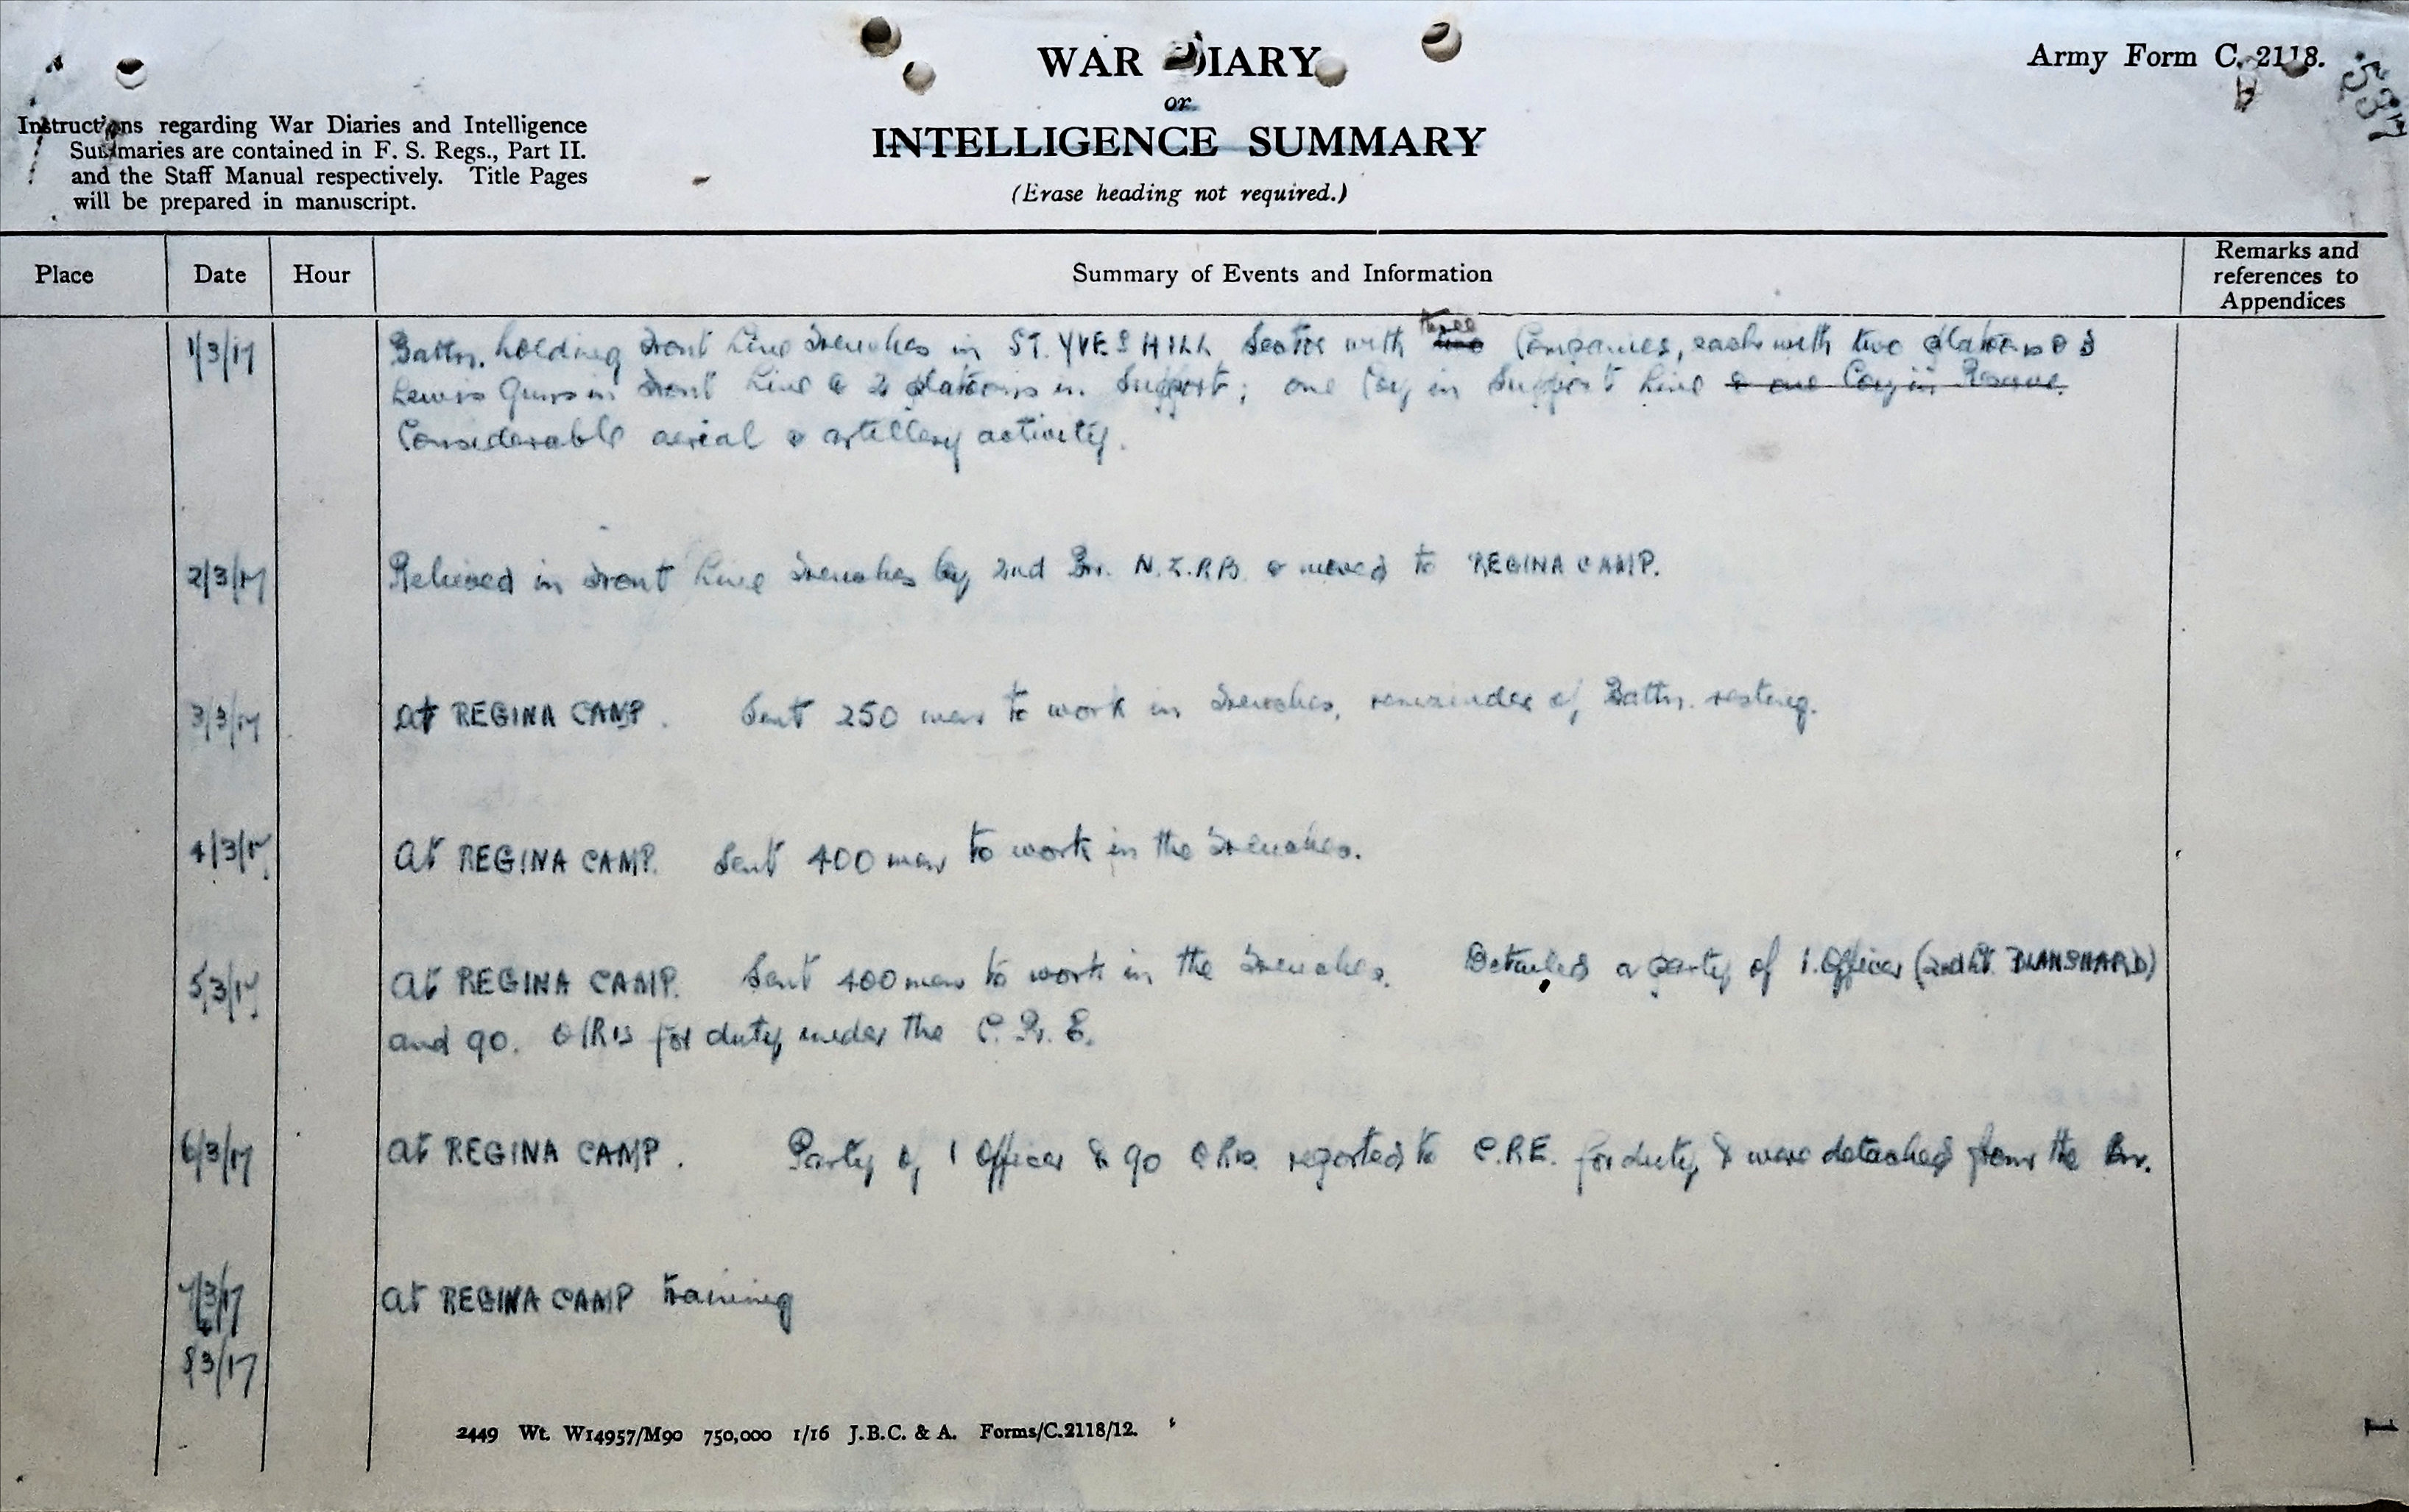 WAR DIARY
or
INTELLIGENCE SUMMARY
(Erase heading not required.)
Army Form C. 2118.
537
Instructions regarding War Diaries and Intelligence
Summaries are contained in F. S. Regs., Part II.
and the Staff Manual respectively. Title Pages
will be prepared in manuscript.
Place Date Hour Summary of Events and Information Remarks and references to Appendices
1/3/17 Battn. holding Front Line Trenches in ST. YVES HILL Sector with three Companies, each with two platoons & 3
Lewis Guns in Front Line & 2 platoons in Support; one Coy in Support Line & one Coy in Reserve.
Considerable aerial & artillery activity.
2/3/17 Relieved in Front Line Trenches by 2nd Bn. N.Z.R.B. & moved to REGINA CAMP.
3/3/17 At REGINA CAMP. Sent 250 men to work in Trenches, remainder of Battn. resting.
4/3/17 At REGINA CAMP. Sent 400 men to work in the Trenches.
5/3/17 At REGINA CAMP. Sent 400 men to work in the Trenches. Detailed a party of 1 Officer (2nd Lt. BLANSHARD)
and 90. O/Rs for duty under the C. R. E.
6/3/17 At REGINA CAMP. Party of 1 Officer & 90 O.Rs. reported to C.R.E. for duty & were detached from the Bn.
7/3/17 At REGINA CAMP training
8/3/17
2449 Wt. W14957/M90 750,000 1/16 J.B.C. & A. Forms/C.2118/12.
1